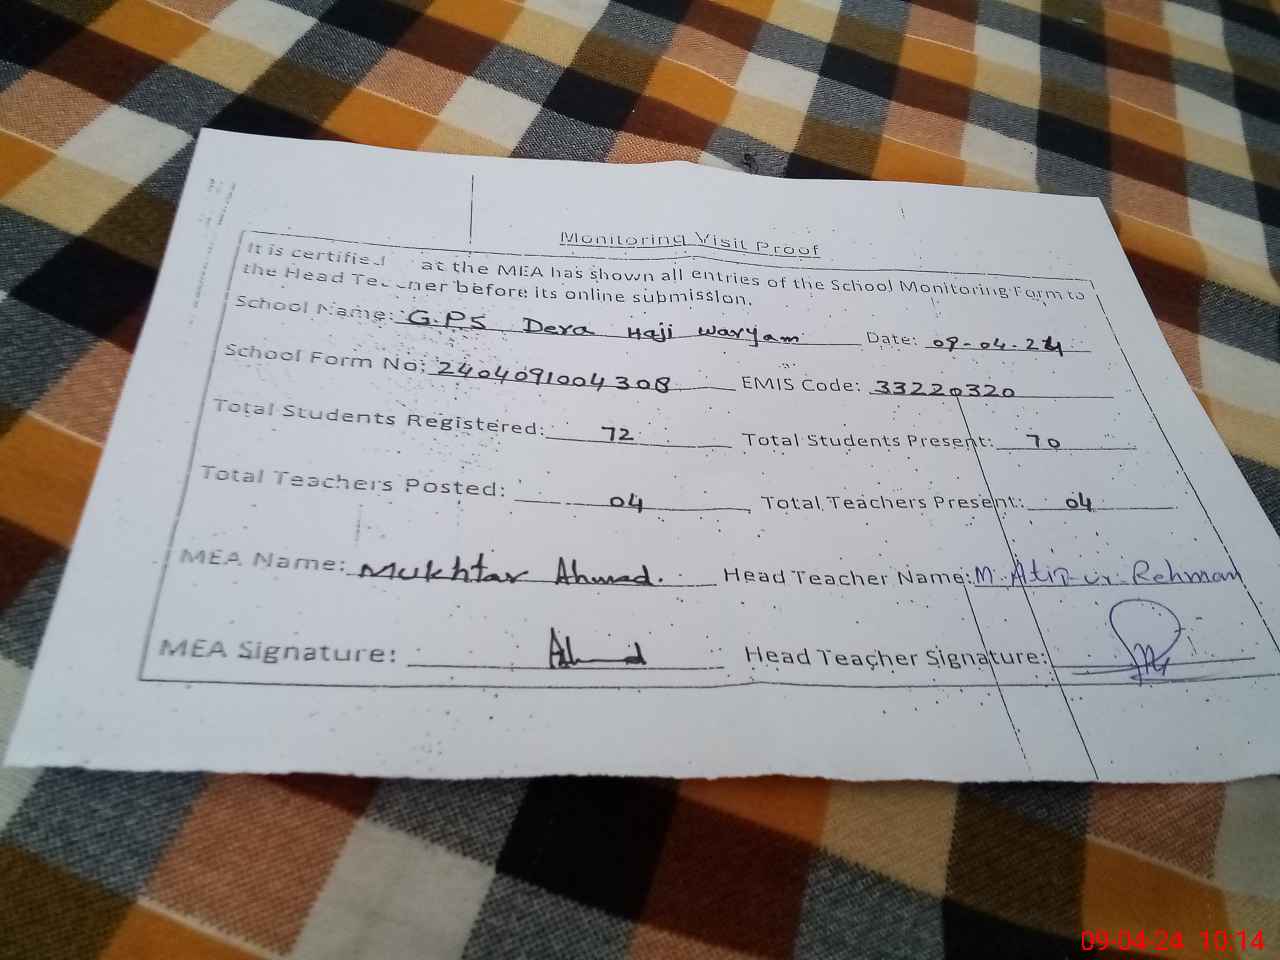 Monitoring Visit Proof
It is certified at the MEA has shown all entries of the School Monitoring Form to
the Head Te ner before its online submission.
School Name: G.PS Dera Haji Waryam Date: 09-04-24
School Form No: 2404091004308 EMIS Code: 33220320
Total Students Registered: 72 Total Students Present: 70
Total Teachers Posted: 04 Total Teachers Present: 04
MEA Name: Mukhtar Ahmad. Head Teacher Name: M. Rehman
MEA Signature: Head Teacher Signature:
09-04-24 10:14